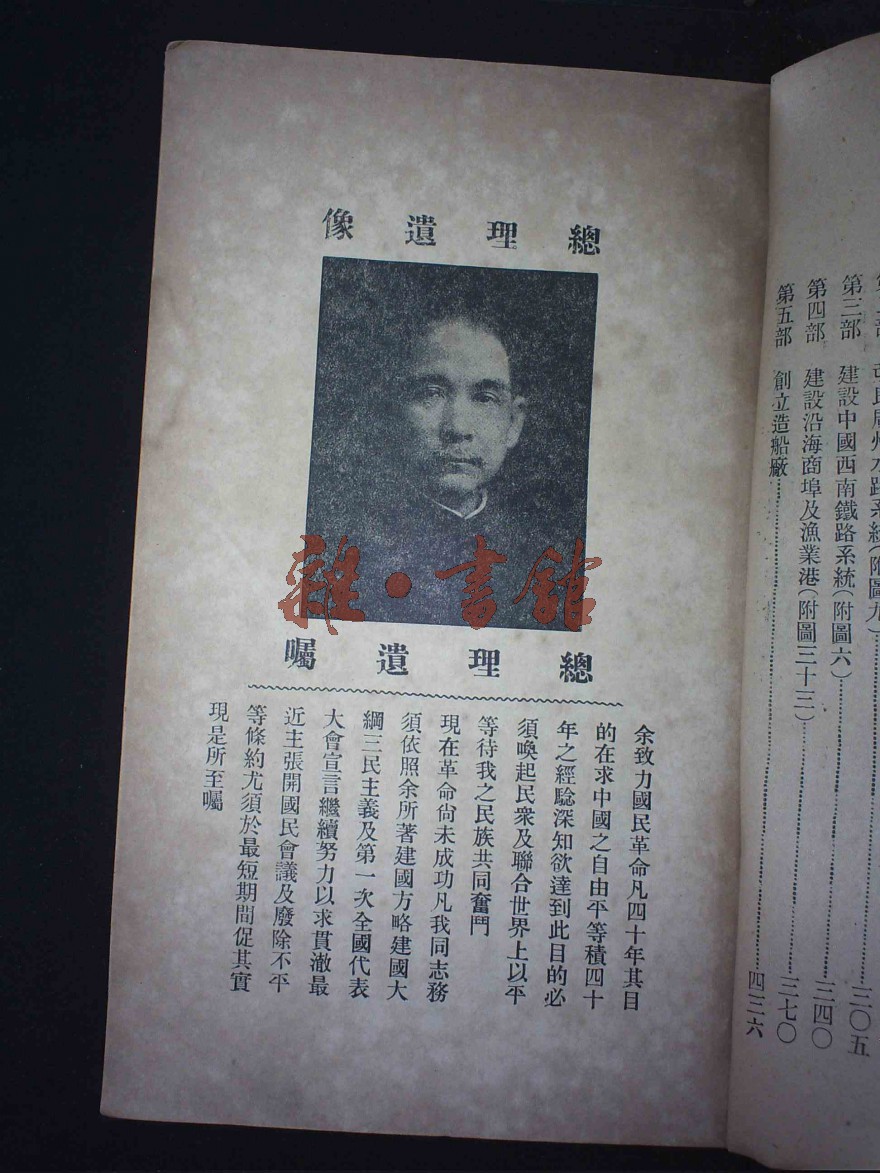 總理遺像
雜·書館
總理遺囑
余致力國民革命凡四十年其目
的在求中國之自由平等積四十
年之經驗深知欲達到此目的必
須喚起民衆及聯合世界上以平
等待我之民族共同奮鬥
現在革命尙未成功凡我同志務
須依照余所著建國方略建國大
綱三民主義及第一次全國代表
大會宣言繼續努力以求貫澈最
近主張開國民會議及廢除不平
等條約尤須於最短期間促其實
現是所至囑
水路系統(附圖九)……三〇五
第三部 建設中國西南鐵路系統(附圖六)……三四〇
第四部 建設沿海商埠及漁業港(附圖三十三)……三七〇
第五部 創立造船廠……四三六